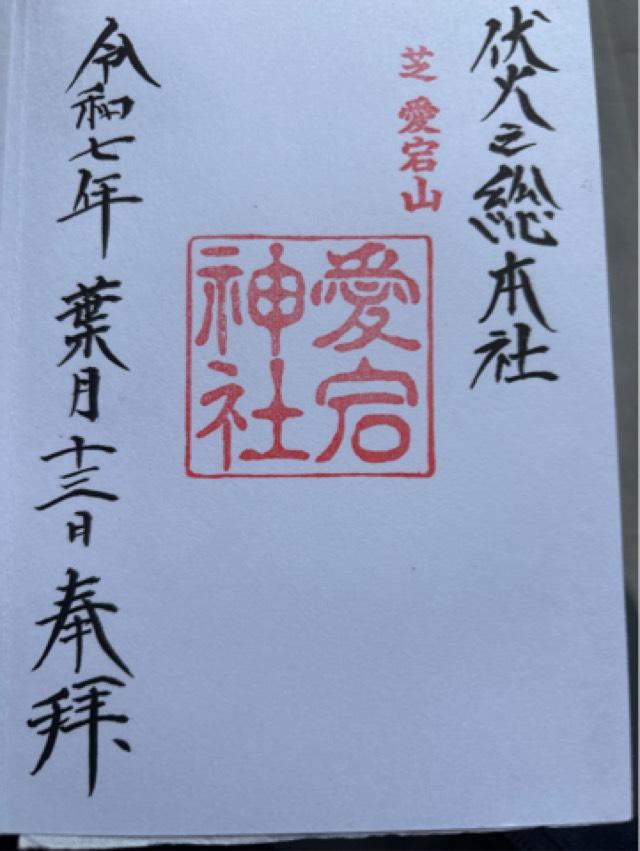 伏火之總本社
芝 愛宕山
愛宕
神社
令和七年 葉月 十三日 奉拝